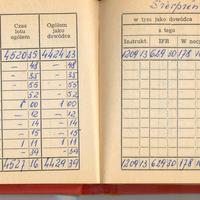 Sierpień
Czas lotu ogółem
Ogółem jako dowódca
w tym jako dowódca
z tego
Instrukt IFR W nocy
4520 35 4424 23
1209 13 629 30 178
— 48 — 48
— 35 — 35
— 55 — 55
52 — 52
1 00 1 00
— 12 — 12
— 14 — 14
— 15 — 15
1 11 1 11
— 39 — 39
4527 16 4429 39
1209 13 629 30 178